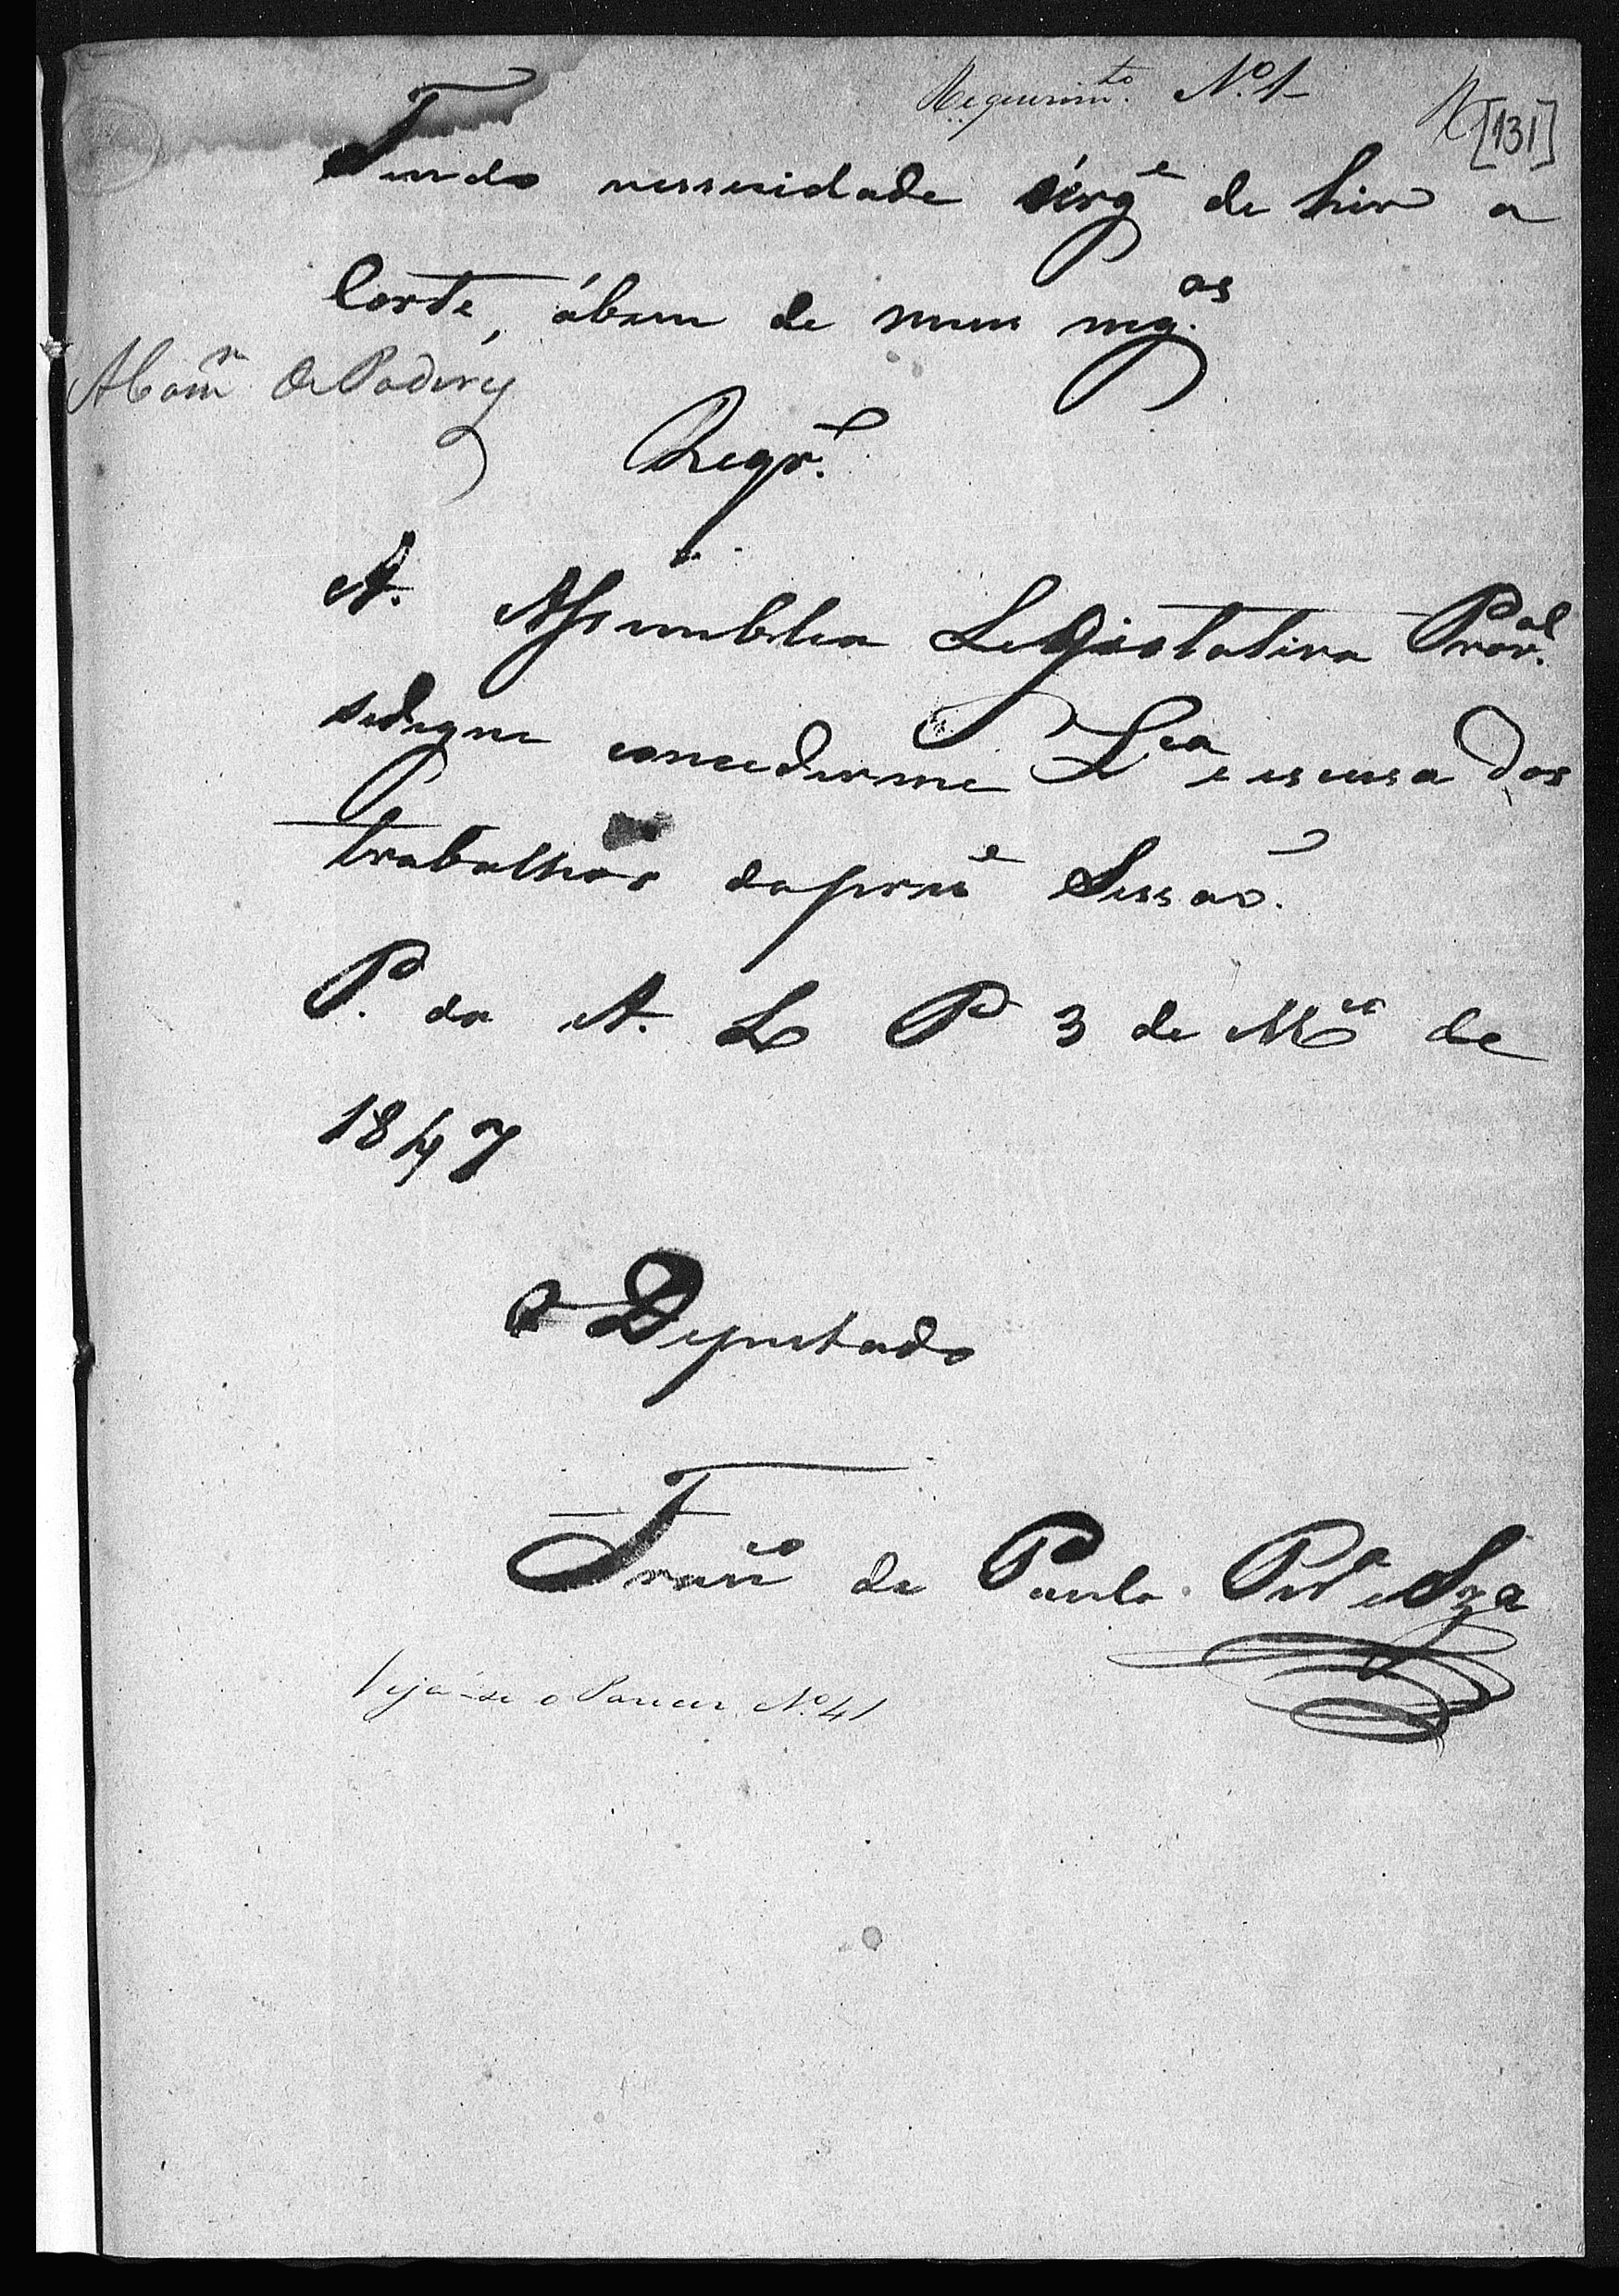 Requerim.to N.º 1
[131]
Tendo nessesidade úrg.e de hir a
Corte, ábem de meus neg.os
A Com.m de Poderes
Reqr.o
A. Assemblea Legislativa Prov.al
sedigne concederme L.ca e escusa dos
trabalhos daprez.e Sessaõ.
P. da A. L P 3 de M.ço de
1847
O Deputado
Fran.co de Paula Per.a e Sza
Veja-se o Parecer N.º 41